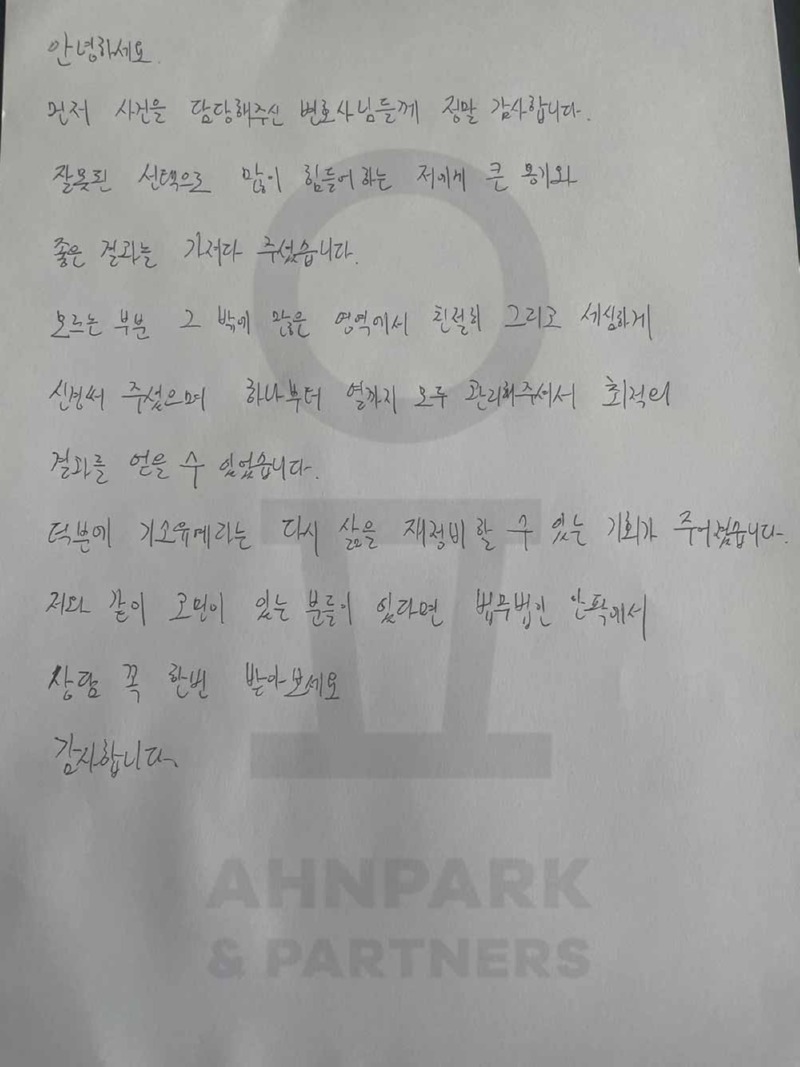 안녕하세요.
먼저 사건을 담당해주신 변호사님들께 정말 감사합니다.
잘못된 선택으로 많이 힘들어하는 저에게 큰 용기와
좋은 결과를 가져다 주셨습니다.
모르는 부분 그 밖에 많은 영역에서 친절히 그리고 세심하게
신경써 주셨으며 하나부터 열까지 모두 관리해주셔서 최적의
결과를 얻을 수 있었습니다.
덕분에 기소유예라는 다시 삶을 재정비할 수 있는 기회가 주어졌습니다.
저와 같이 고민이 있는 분들이 있다면 법무법인 안팍에서
상담 꼭 한번 받아보세요
감사합니다.
AHNPARK
& PARTNERS